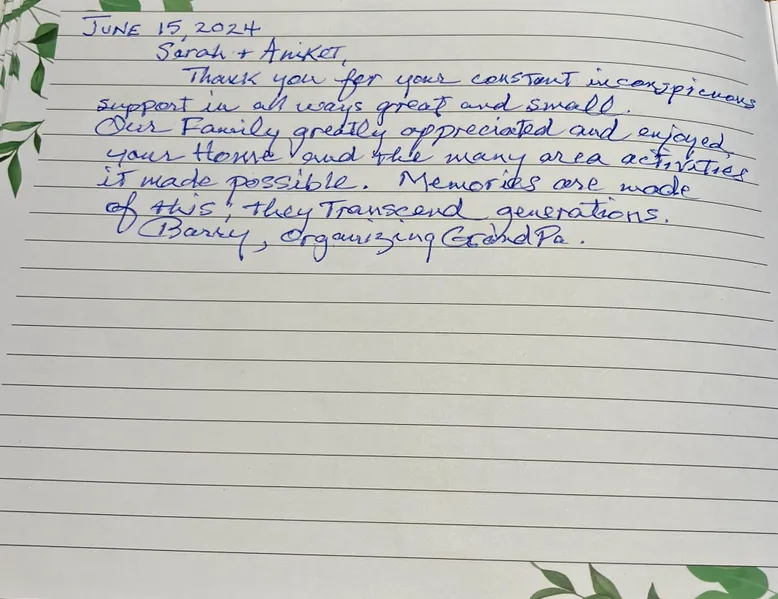 JUNE 15, 2024
Sarah + Aniket,
Thank you for your constant inconspicuous
support in all ways great and small.
Our Family greatly appreciated and enjoyed
your Home and the many area activities
it made possible. Memories are made
of this; they Transcend generations.
Barry, organizing GrandPa.